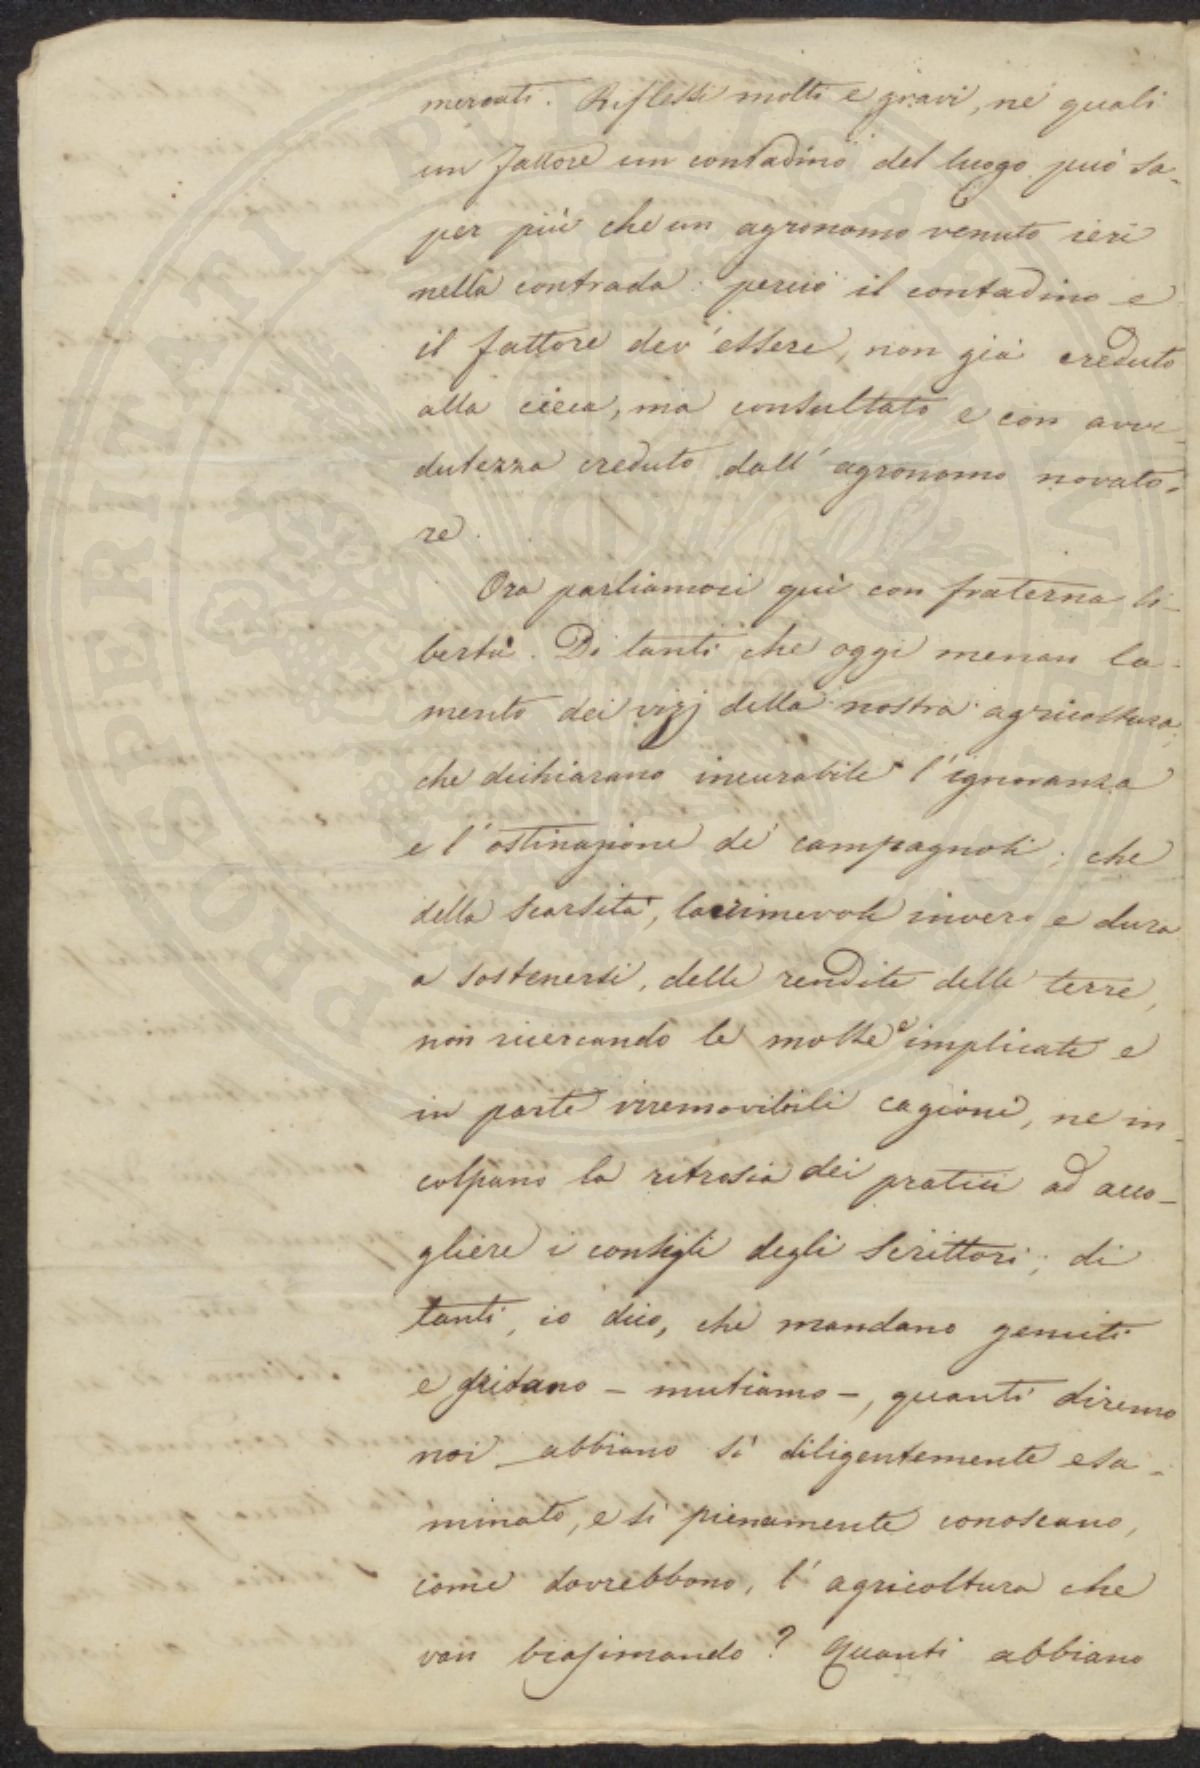 mercati. Riflessi molti e gravi, ne' quali
un fattore un contadino del luogo può sa-
per più che un agronomo venuto ieri
nella contrada: perciò il contadino e
il fattore dev'essere, non già creduto
alla cieca, ma consultato e con avve-
dutezza creduto dall'agronomo novato-
re.
Ora parliamoci quì con fraterna li-
bertà. Di tanti che oggi menan la-
mento dei vizj della nostra agricoltura;
che dichiarano incurabile l'ignoranza
e l'ostinazione de' campagnoli; che
della scarsità, lacrimevole invero e dura
a sostenersi, delle rendite delle terre,
non ricercando le molte e implicate e
in parte irremovibili cagioni, ne in-
colpano la retrosia dei pratici ad acco-
gliere i consigli degli scrittori; di
tanti, io dico, che mandano gemiti
e gridano – mutiamo –, quanti diremo
noi abbiano sì diligentemente esa-
minato, e sì pienamente conoscano,
come dovrebbono, l'agricoltura che
van biasimando? Quanti abbiano
PROSPERITATI PUBLICAE AUGENDAE